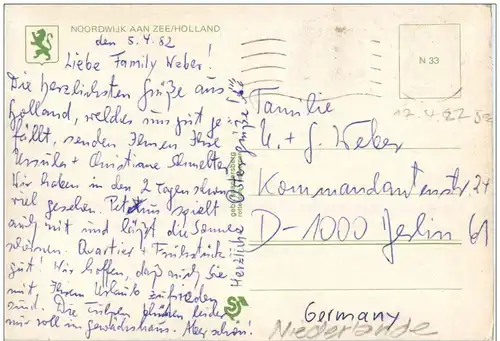 NOORDWIJK AAN ZEE/HOLLAND
den 5.4.82
Liebe Family Weber!
Die herzlichsten Grüße aus
Holland, welches uns gut ge-
fällt, senden Ihnen Ihre
Ursula + Christiane
Wir haben in den 2 Tagen schon
viel gesehen. Petrus spielt
auch mit und läßt die Sonne
scheinen. Quartier + Frühstück
gut! Wir hoffen, daß auch Sie
mit Ihrem Urlaub zufrieden
sind. Die Tulpen blühen leider
nur voll im Gewächshaus. Aber schön!
Herzliche Ostergrüße!
N 33
Familie
U. + G. Weber
Kommandantenstr. 24
D-1000 Berlin 61
Germany
Niederlande